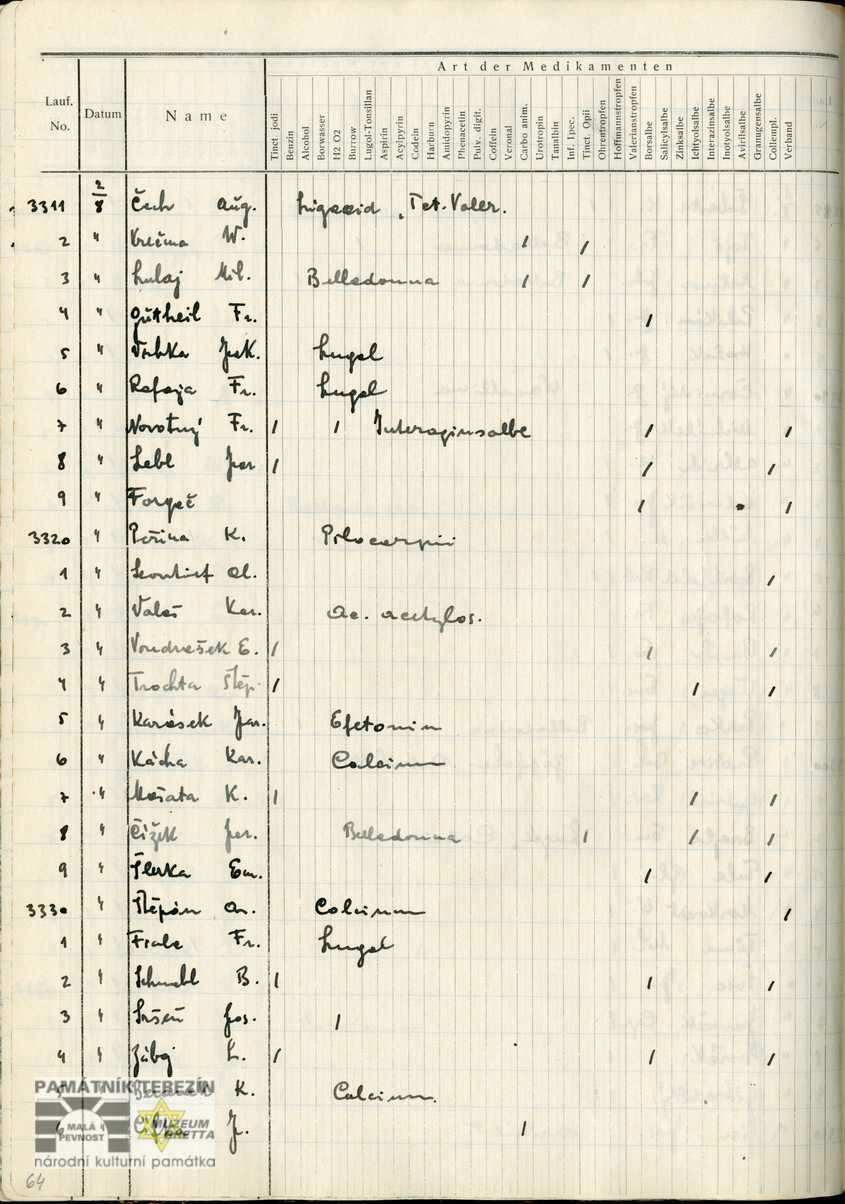 Art der Medikamenten
Lauf. No. Datum Name Tinct. jodi Benzin Alcohol Borwasser H2 O2 Burrow Lugol-Tonsillan Aspirin Acylpyrin Codein Harburn Amidopyrin Phenacetin Pulv. digit. Coffein Veronal Carbo anim. Urotropin Tanalbin Inf. Ipec. Tinct. Opii Ohrentropfen Hoffmannstropfen Valerianstropfen Borsalbe Salicylsalbe Zinksalbe Ichtyolsalbe Interazinsalbe Inotyolsalbe Avirilsalbe Granugensalbe Collempl. Verband
3311 2/8 Čech Aug. Tct. Valer.
2 " W. / /
3 " Lulaj Mil. Belladonna / /
4 " Gutheil Fr. /
5 " Vrbka Lugol
6 " Refaja Fr. Lugol
7 " Novotný Fr. / / / /
8 " Lebl Jar / / /
9 " Forgač / • /
3320 " Peřina K. Pilocarpii
1 " Al. /
2 " Valeš Kar. Ac. acetylos.
3 " E. / / /
4 " Trochta Štěp. / / /
5 " Karásek Jar. Efetonin
6 " Kácha Kar. Calcium
7 " K. / / /
8 " Čížek Jar. Belladonna / / /
9 " Em. / /
3330 " Štěpán An. Calcium /
1 " Fiala Fr. Lugol
2 " B. / / /
3 " Jos. /
4 " Záboj L. / / /
K. Calcium.
J. /
PAMÁTNÍK TEREZÍN
MALÁ PEVNOST
MUZEUM GHETTA
národní kulturní památka
64